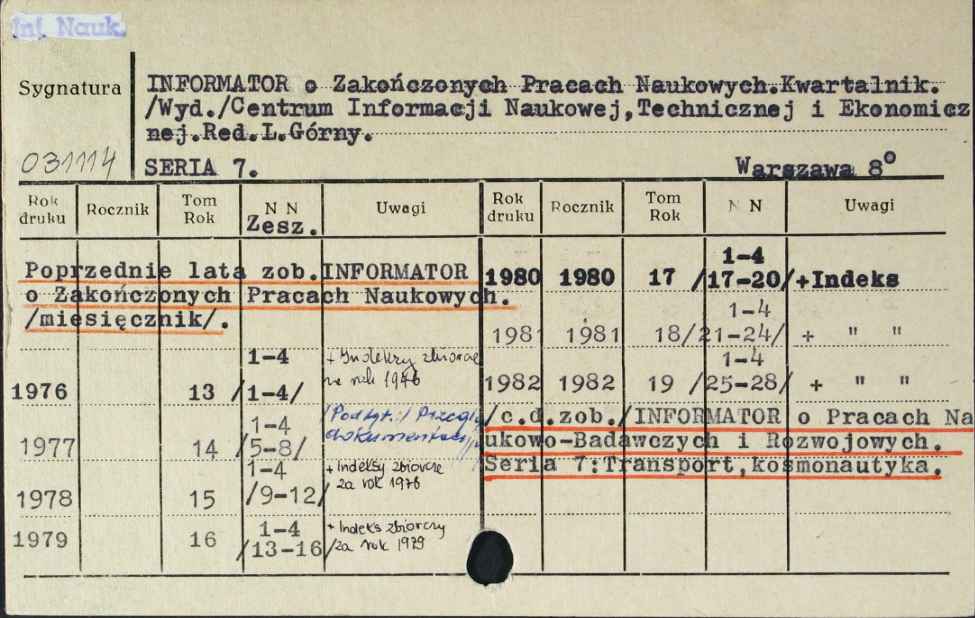 Inf. Nauk.
Sygnatura
031114
INFORMATOR o Zakończonych Pracach Naukowych.Kwartalnik.
/Wyd./Centrum Informacji Naukowej,Technicznej i Ekonomicz
nej.Red.L.Górny.
SERIA 7. Warszawa 8°
Rok druku Rocznik Tom Rok N N Zesz. Uwagi
Poprzednie lata zob.INFORMATOR
o Zakończonych Pracach Naukowych.
/miesięcznik/.
1976 13 1-4 /1-4/ + Indeksy zbiorcze za rok 1976
1977 14 1-4 /5-8/ /Podtyt.:/ Przegl. dokumentac.
1978 15 1-4 /9-12/ + Indeksy zbiorcze za rok 1976
1979 16 1-4 /13-16/ + Indeks zbiorczy za rok 1979
Rok druku Rocznik Tom Rok N N Uwagi
1980 1980 17 1-4 /17-20/ +Indeks
1981 1981 18 1-4 /21-24/ + " "
1982 1982 19 1-4 /25-28/ + " "
/c.d.zob./INFORMATOR o Pracach Na
ukowo-Badawczych i Rozwojowych.
Seria 7:Transport,kosmonautyka.